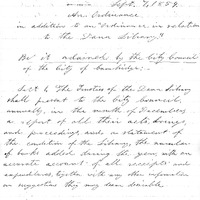 Sept. 7, 1859.
An Ordinance
in addition to an "Ordinance in relation
to the Dana Library."
Be it ordained by the City Council
of the City of Cambridge:
Sect. 1. The Trustees of the Dana Library
shall present to the City Council,
annually, in the month of December,
a report of all their acts, doings,
and proceedings and a statement of
the condition of the Library, the number
of books added during the year, with an
accurate account of all receipts and
expenditures, together with any other information
or suggestions they may deem desirable